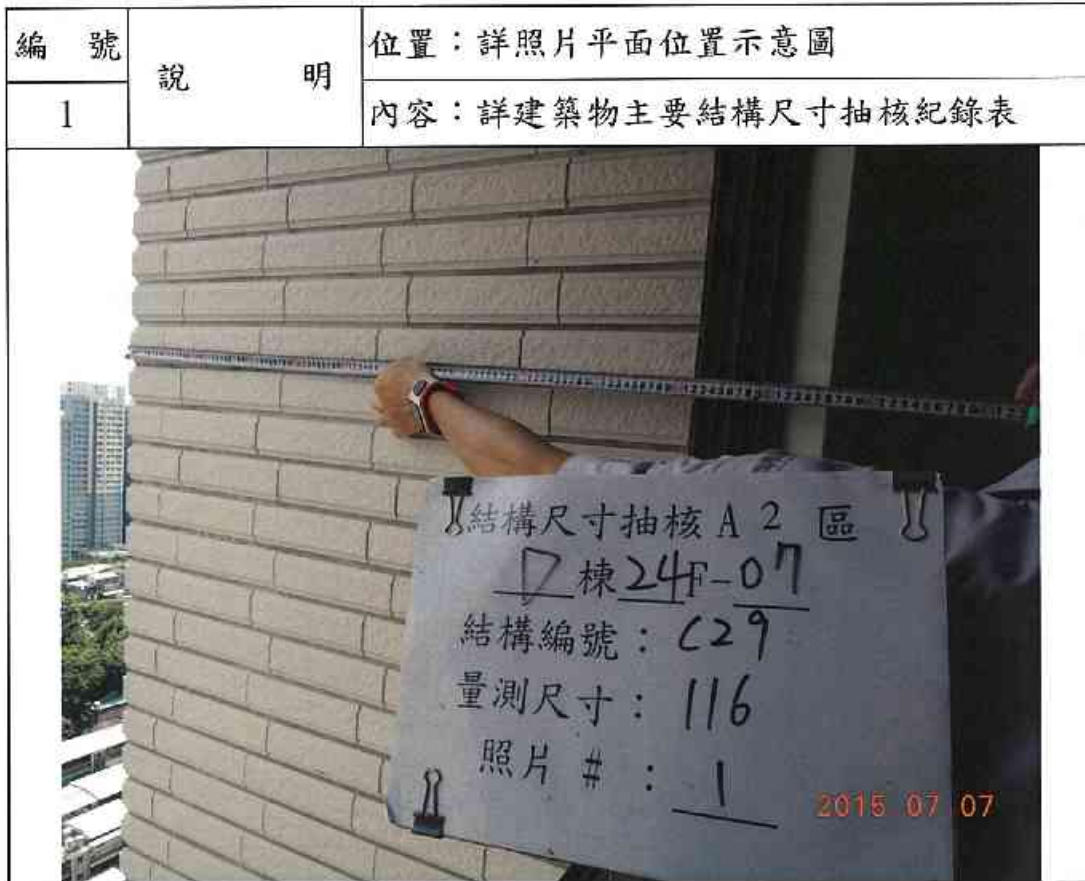 編 號
說 明
位置：詳照片平面位置示意圖
1
內容：詳建築物主要結構尺寸抽核紀錄表
結構尺寸抽核A 2 區
D棟24F-07
結構編號：C29
量測尺寸：116
照片 #：1
2015 07 07